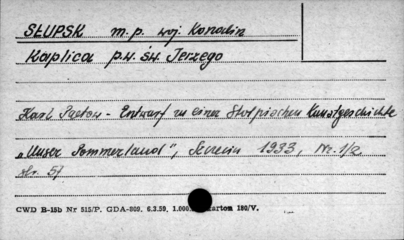 SŁUPSK m.p. woj. Koszalin
Kaplica p.w. św. Jerzego
Karl Paetow - Entwurf zu einer Stolpischen Kunstgeschichte
„Unser Pommerland", Szczecin 1933, Nr. 1/2
str. 51
CWD B-15b Nr 515/P. GDA-809. 6.3.59. 1.000. karton 180/V.